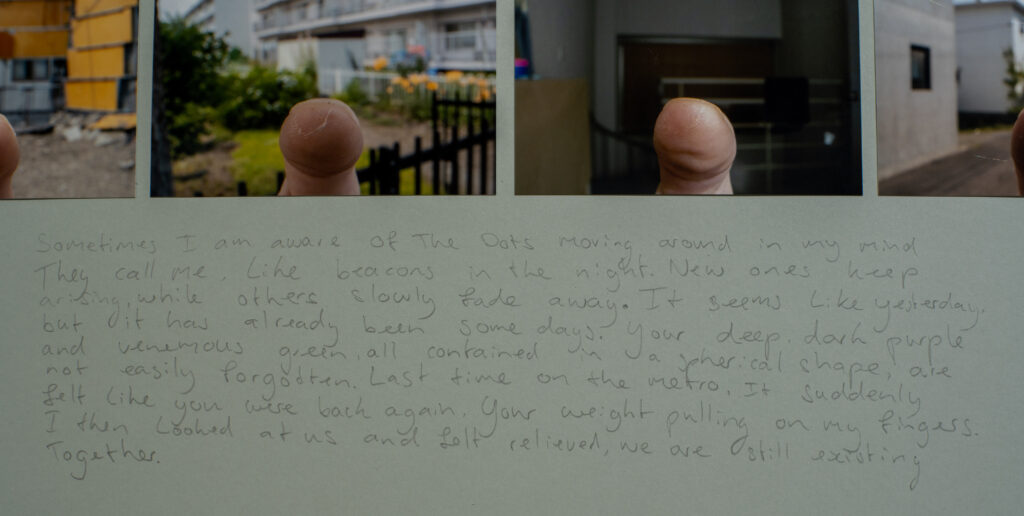 Sometimes I am aware of The Dots moving around in my mind
They call me. Like beacons in the night. New ones keep
arising, while others slowly fade away. It seems like yesterday.
but it has already been some days. Your deep dark purple
and venemous green, all contained in a spherical shape, are
not easily forgotten. Last time on the metro. It suddenly
felt like you were back again. Your weight pulling on my fingers.
I then looked at us and felt relieved, we are still existing
Together.